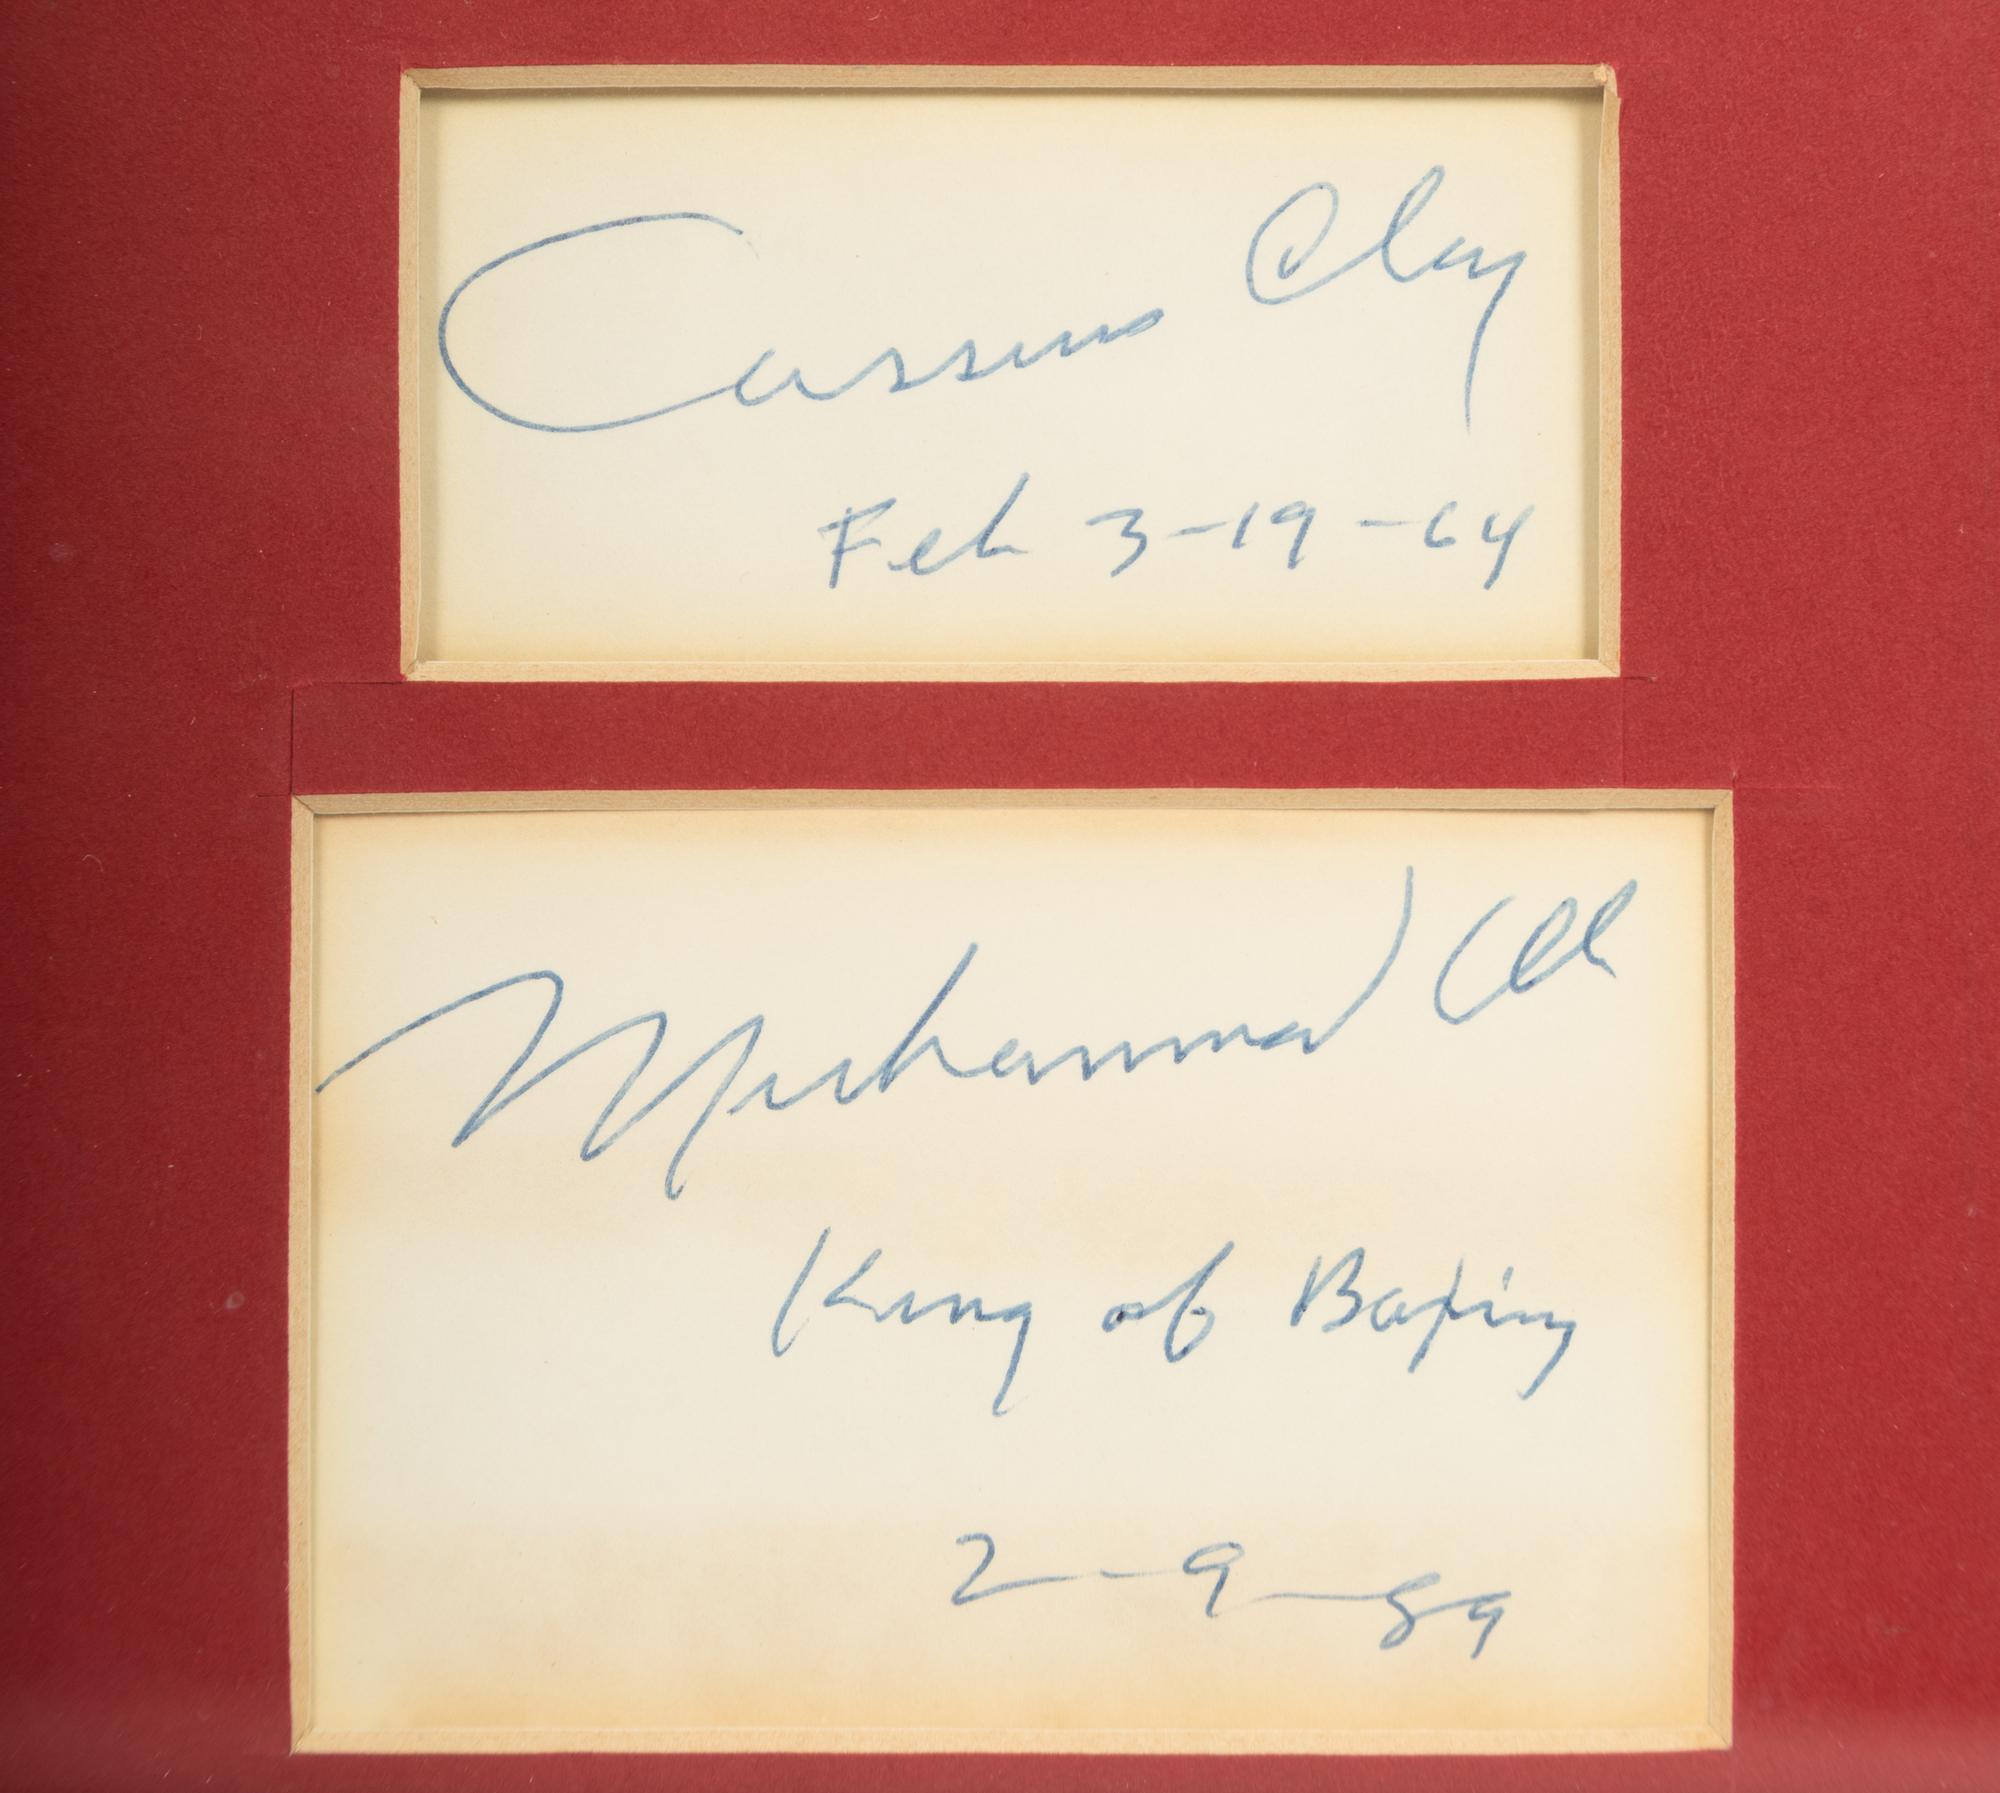 Cassius Clay
Feb 3-19-64
Muhammad Ali
King of Boxing
2-9-89